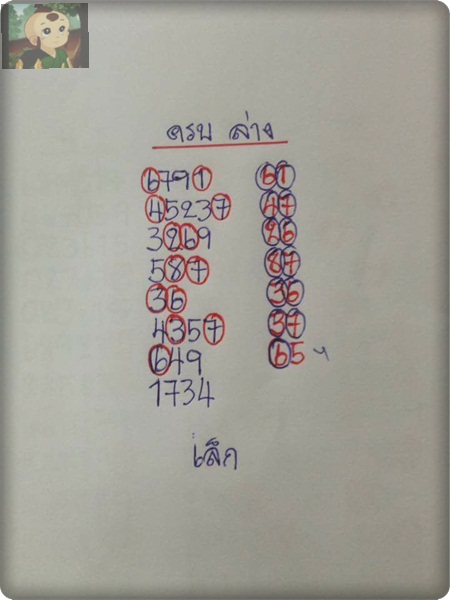 ครบ ล่าง
6791 61
45237 47
3269 26
587 87
36 36
4357 37
649 65
1734
เล็ก